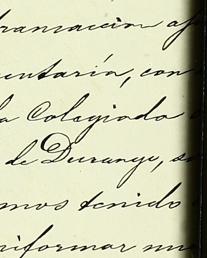 transaccion a
entaría, con
a Colegiado
de Durango, s
mos tenido
niformar nu